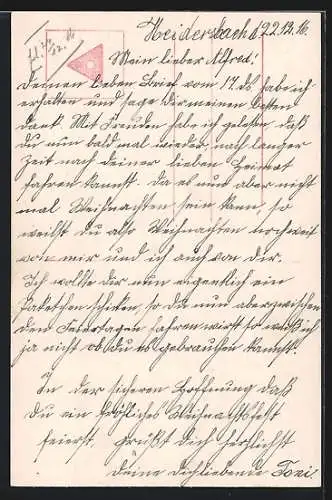 Heidersbach d. 22.12.16.
Mein lieber Alfred!
Deinen lieben Brief vom 17. ds. habe ich
erhalten und sage Dir meinen besten
Dank. Mit Freuden habe ich gelesen, daß
Du nun bald mal wieder, nach langer
Zeit nach deiner lieben Heimat
fahren kannst. Da es nun aber nicht
mal Weihnachten sein kann, so
weilst du also Weihnachten
von mir und ich auch von dir.
Ich wollte dir nun eigentlich ein
Paketchen schicken, so du nun aber zwischen
den Feiertagen fahren wirst so weiß ich
ja nicht ob du es gebrauchen kannst.
In der sicheren Hoffnung daß
Du ein fröhliches Weihnachtsfest
feierst. Grüßt dich herzlichst
deine dichliebende Toni.